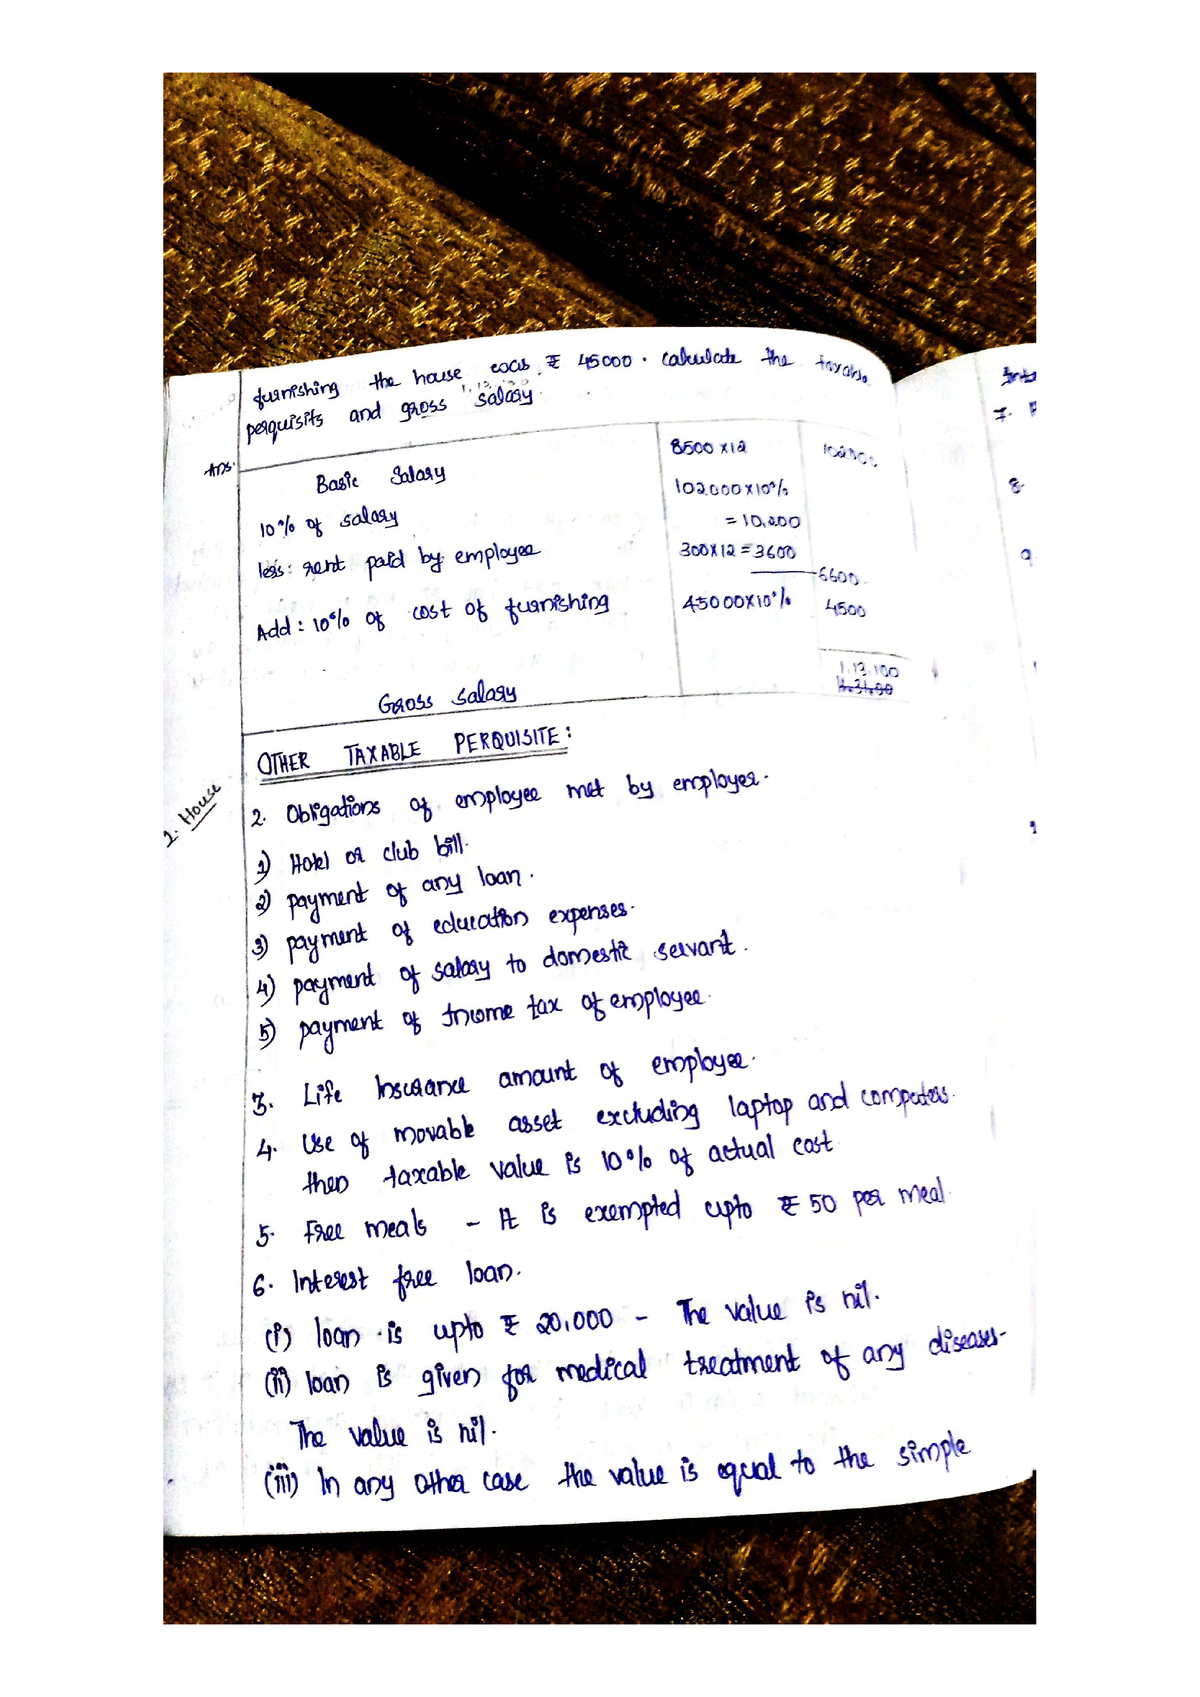 furnishing the house cocus ₹ 45000. calculate the taxable
perquisits and gross salary.
Ans.
Basic Salary 8500 x 12 102000
10% of salary 102000 x 10%
= 10,200
less: rent paid by employee 300 x 12 = 3600
6600
Add: 10% of cost of furnishing 45000 x 10% 4500
1,13,100
Gross salary
OTHER TAXABLE PERQUISITE:
2. House
2. Obligations of employee met by employer.
1) Hotel or club bill.
2) payment of any loan.
3) payment of education expenses.
4) payment of salary to domestic servant.
5) payment of Income tax of employee.
3. Life Insurance amount of employee.
4. Use of movable asset excluding laptop and computers.
then taxable value is 10% of actual cost
5. Free meals - It is exempted upto ₹ 50 per meal.
6. Interest free loan.
(i) loan is upto ₹ 20,000 - The value is nil.
(ii) loan is given for medical treatment of any diseases-
The value is nil.
(iii) In any other case the value is equal to the simple
7.
8.
9